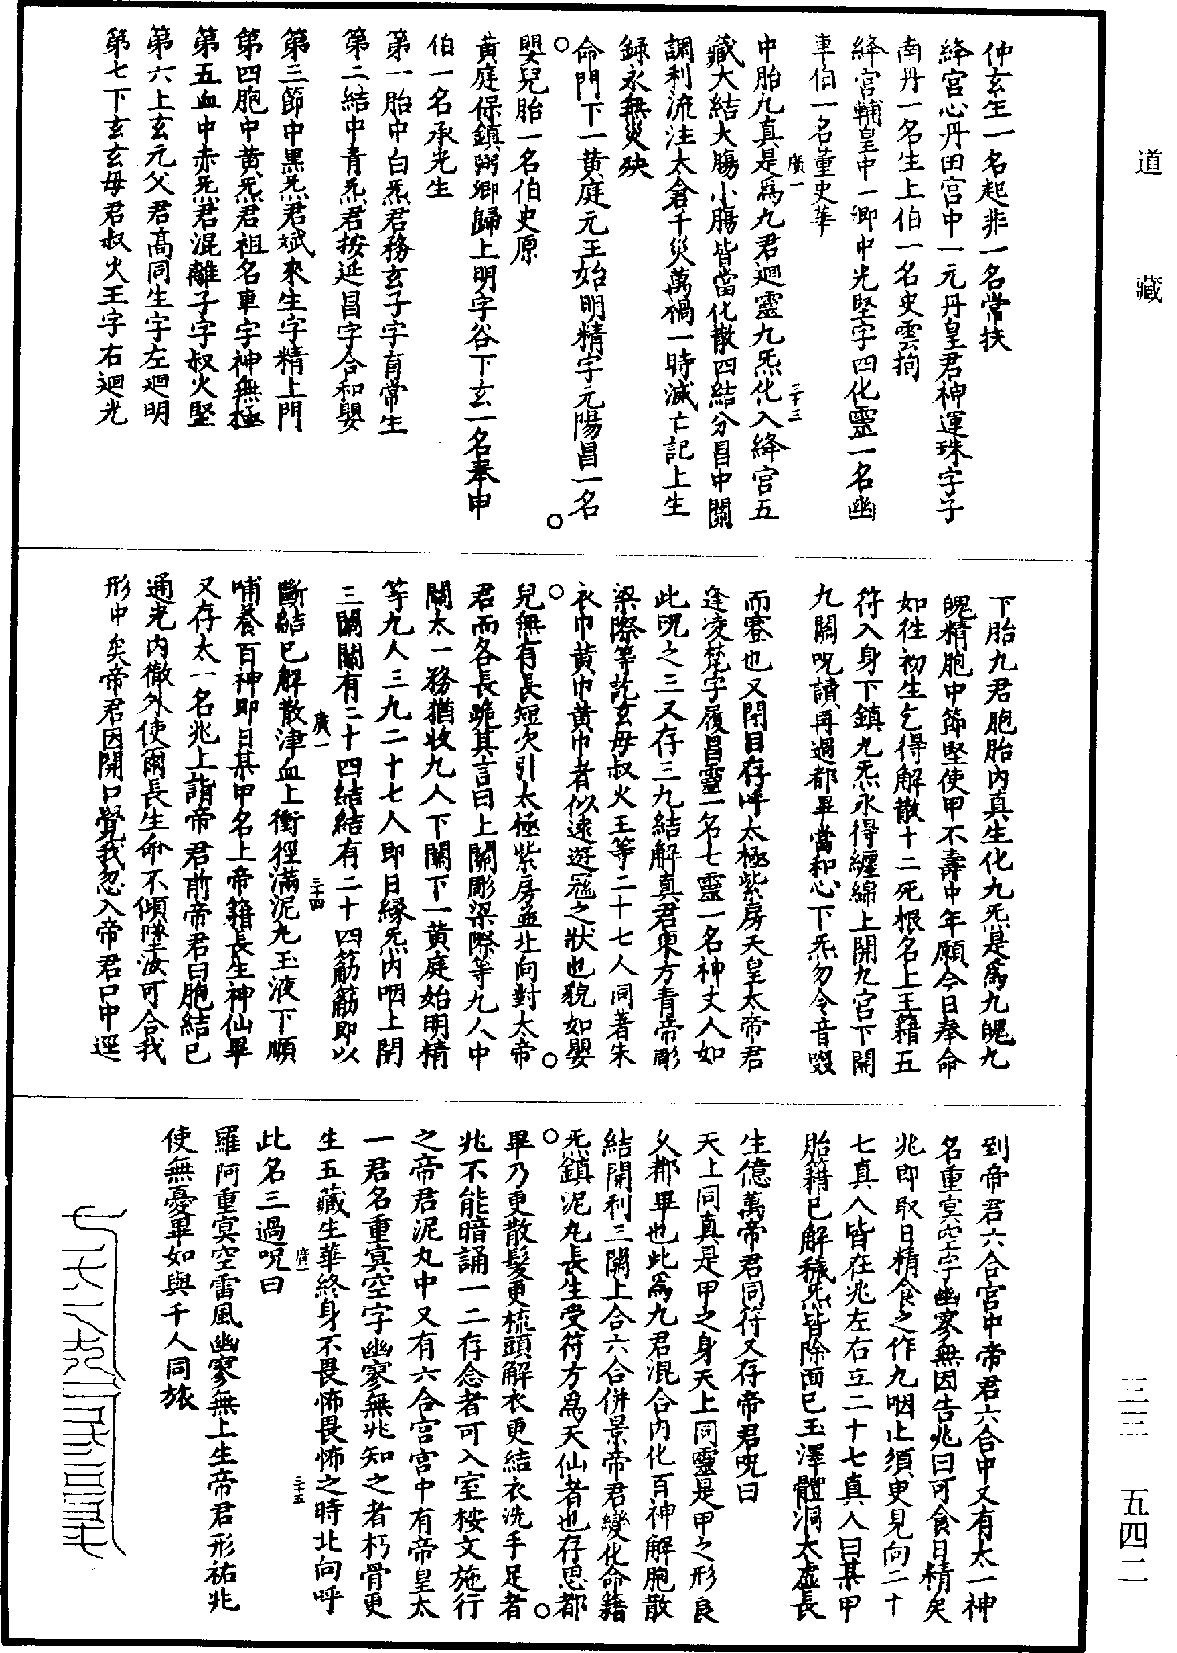 道藏
仲玄生一名起非一名常扶
絳宮心丹田宮中一元丹皇君神運珠字子
南丹一名生上伯一名史雲拘
絳宮輔皇中一卿中光堅字四化靈一名幽
車伯一名董史華
中胎九真是為九君迴靈九炁化入絳宮五
廣一
三十三
藏大結大腸小腸皆當化散四結分昌中關
調利流注太倉千災萬禍一時滅亡記上生
録永無災殃
命門下一黃庭元王始明精字元陽昌一名
嬰兒胎一名伯史原
黃庭保鎮弼卿歸上明字谷下玄一名奉申
伯一名承光生
第一胎中白炁君務玄子字育常生
第二結中青炁君按延昌字合和嬰
第三節中黑炁君斌來生字精上門
第四胞中黃炁君祖名車字神無極
第五血中赤炁君混離子字叔火堅
第六上玄元父君高同生字左迴明
第七下玄玄母君叔火王字右迴光
下胎九君胞胎內真生化九炁是為九魄九
魄精胞中節堅使甲不壽中年願今日奉命
如往初生乞得解散十二死根名上玉籍五
符入身下鎮九炁永得纏綿上開九宮下開
九關呪讀再過都畢當和心下炁勿令音啜
而寋也又閉目存呼太極紫房天皇太帝君
逢凌梵字履昌靈一名七靈一名神丈人如
此呪之三又存三九結解真君東方青帝彫
梁際等訖玄母叔火王等二十七人同著朱
衣巾黃巾黃巾者似遠遊冠之狀也貌如嬰
兒無有長短次引太極紫房並北向對太帝
君而各長跪其言曰上關彫梁際等九人中
關太一務猶收九人下關下一黃庭始明精
等九人三九二十七人即日緣炁內咽上開
三關關有二十四結結有二十四筋筋即以
廣一
三十四
斷結已解散津血上衝徑滿泥丸玉液下順
哺養百神即日某甲名上帝籍長生神仙畢
又存太一名兆上詣帝君前帝君曰胞結已
通光內徹外使爾長生命不傾墜汝可合我
形中矣帝君因開口覺我忽入帝君口中逕
到帝君六合宮中帝君六合中又有太一神
名重冥空字幽寥無因告兆曰可食日精矣
兆即取日精食之作九咽止須臾見向二十
七真人皆在兆左右立二十七真人曰某甲
胎籍已解穢炁皆除面已玉澤體洞太虛長
生億萬帝君同符又存帝君呪曰
天上同真是甲之身天上同靈是甲之形良
久都畢也此為九君混合內化百神解胞散
結開利三關上合六合併景帝君變化命籍
炁鎮泥丸長生受符方為天仙者也存思都
畢乃更散髮更梳頭解衣更結衣洗手足者
兆不能暗誦一二存念者可入室按文施行
之帝君泥丸中又有六合宮宮中有帝皇太
一君名重冥空字幽寥無兆知之者朽骨更
生五藏生華終身不畏怖畏怖之時北向呼
廣一
三十五
此名三過呪曰
羅阿重冥空雷風幽寥無上生帝君形祐兆
使無憂畢如與千人同旅
三三
五四二